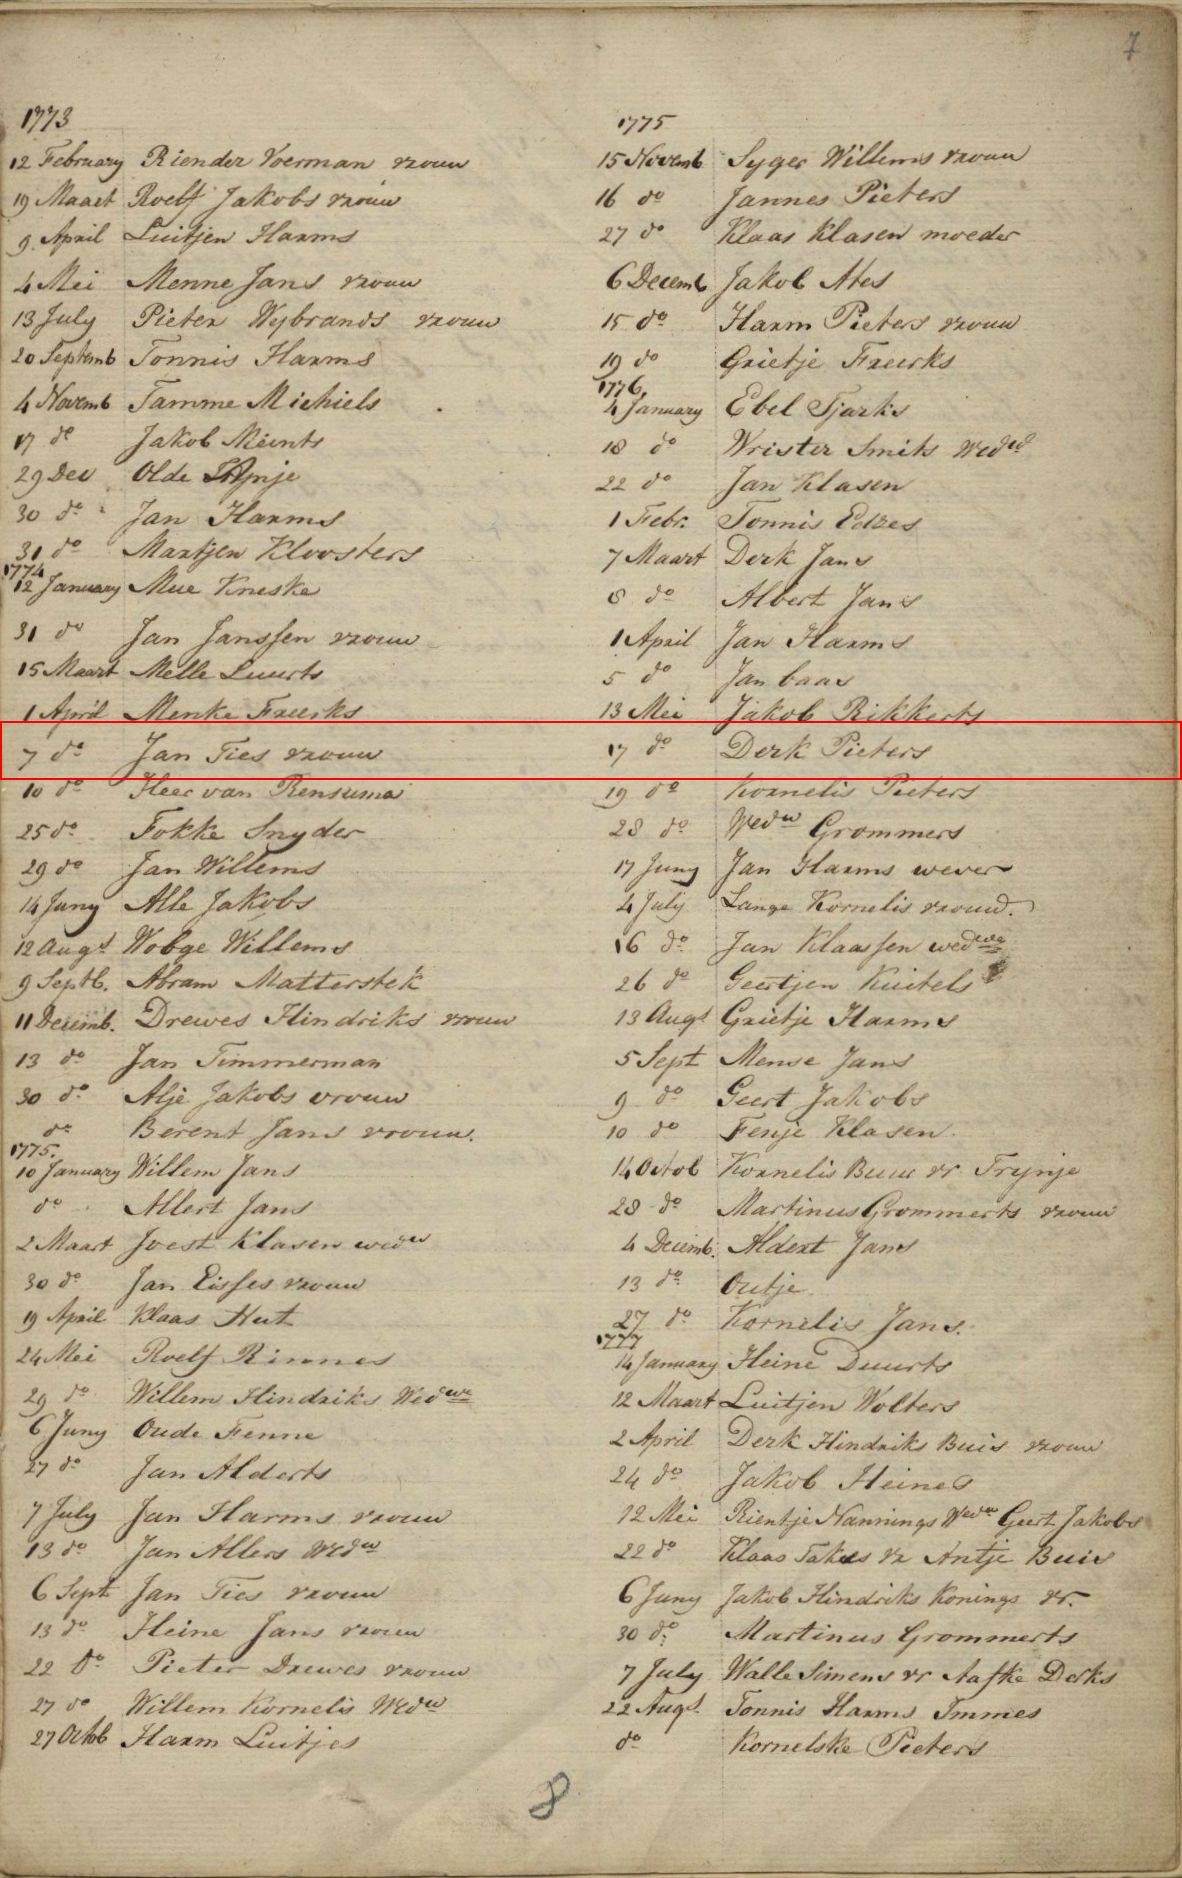 7
1773
12 February Riender Voerman vrouw
19 Maart Roelf Jakobs vrouw
9 April Luitjen Harms
4 Mei Menne Jans vrouw
13 July Pieter Wybrands vrouw
20 Septemb Tonnis Harms
4 Novemb Tamme Michiels
17 do Jakob Meints
29 Dec Olde
30 do Jan Harms
31 do Martjen Kloosters
1774
12 January Mue Kneske
31 do Jan Janssen vrouw
15 Maart Melle Luurts
1 April Menke Freerks
7 do Jan Ties vrouw
10 do Heer van Rensuma
25 do Fokke Snyder
29 do Jan Willems
14 Juny Alle Jakobs
12 Augt Wobge Willems
9 Septb. Abram Matterstek
11 Decemb. Drewes Hindriks vrouw
13 do Jan Timmerman
30 do Alje Jakobs vrouw
do Berent Jans vrouw.
1775.
10 January Willem Jans
do Allert Jans
2 Maart Joest Klasen wedw
30 do Jan Eisses vrouw
19 April Klaas Hut
24 Mei Roelf Rinnes
29 do Willem Hindriks Wedwe
6 Juny Oude Fenne
27 do Jan Alderts
7 July Jan Harms vrouw
13 do Jan Allers Wedw
6 Sept Jan Ties vrouw
13 do Heine Jans vrouw
22 do Pieter Drewes vrouw
27 do Willem Kornelis Wedw
27 Octob Harm Luitjes
1775
15 Novemb Syger Willems vrouw
16 do Jannes Pieters
27 do Klaas Klasen moeder
6 Decemb Jakob Ates
15 do Harm Pieters vrouw
19 do Grietje Freerks
1776.
4 January Ebel Tjarks
18 do Wrister Smits Wed
22 do Jan Klasen
1 Febr. Tonnis Edzes
7 Maart Derk Jans
8 do Albert Jans
1 April Jan Harms
5 do Jan baas
13 Mei Jakob Rikkerts
17 do Derk Pieters
19 do Kornelis Pieters
28 do Wedw Grommers
17 Juny Jan Harms wever
4 July Lange Kornelis vrouw.
16 do Jan Klaassen wed
26 do Geertjen Kuitels
13 Augt Grietje Harms
5 Sept Mense Jans
9 do Geert Jakobs
10 do Fenje Klasen.
14 Octob Kornelis Buur vr Trynje
28 do Martinus Grommerts vrouw
4 Decemb. Aldert Jans
13 do Outje
27 do Kornelis Jans.
1777
14 January Heine Duurts
12 Maart Luitjen Wolters
2 April Derk Hindriks Buis vrouw
24 do Jakob Heines
12 Mei Rientje Nannings Wedw Geert Jakobs
22 do Klaas Takes vr Antje Buis
6 Juny Jakob Hindriks Konings vr.
30 do Martinus Grommerts
7 July Walle Simens vr Aafke Derks
22 Augt. Tonnis Harms Immes
do Kornelske Pieters
8